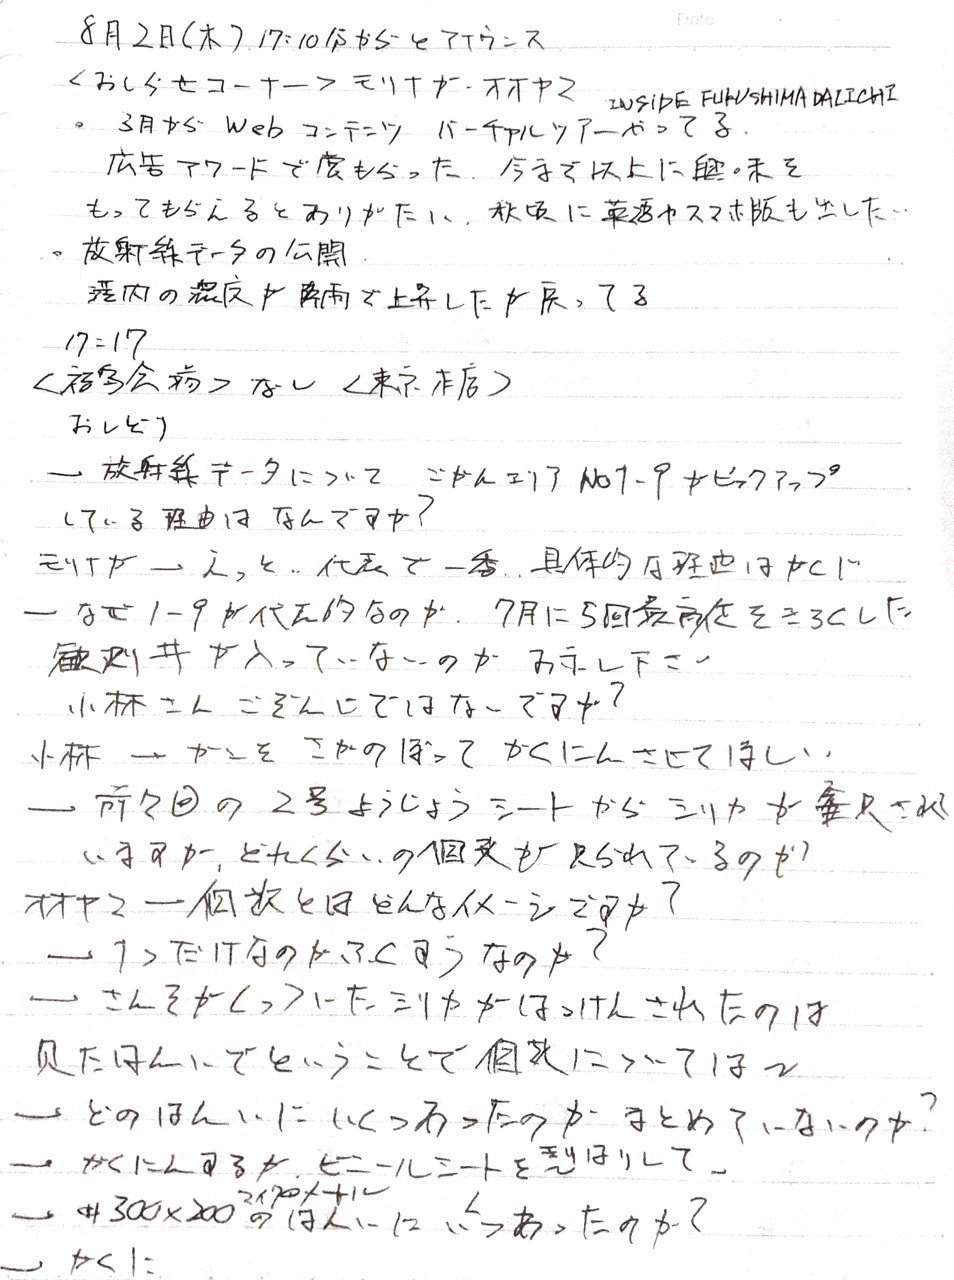 Date
8月2日(木) 17:10分からとアナウンス
<おしらせコーナー> モリナガ・オオヤマ
INSIDE FUKUSHIMA DAIICHI
。3月から Web コンテンツ バーチャルツアーやってる.
広告アワードで賞もらった. 今まで以上に興味を
もってもらえるとありがたい. 秋頃に英語やスマホ版も出したい..
。放射線データの公開.
港内の濃度が降雨で上昇したが戻ってる
17:17
<福島会場> なし <東京本店>
おしどり
→ 放射線データについて ごがんエリア No1-9がピックアップ
している理由はなんですか?
モリナガ → えっと.. 代表で一番.. 具体的な理由はかくに
→ なぜ1-9が代表的なのか. 7月に5回最高値をきろくした
観測井が入っていないのか お示し下さい
小林さん ごぞんじではないですか?
小林 → かこを さかのぼって かくにんさせてほしい..
→ 前々回の2号ようじょうシートからシリカが され
いますが, どれくらいの個数が見られているのか?
オオヤマ → 個数とはどんなイメージですか?
→ 1つだけなのかふくすうなのか?
→ さんそがくっついたシリカがはっけんされたのは
見たはんいでということで個数については〜
→ どのはんいにいくつあったのか まとめていないのか?
→ かくにんするが. ビニールシートを切りはりして〜
→ #300×200マイクロメートルのはんいにいくつあったのか?
→ かくに